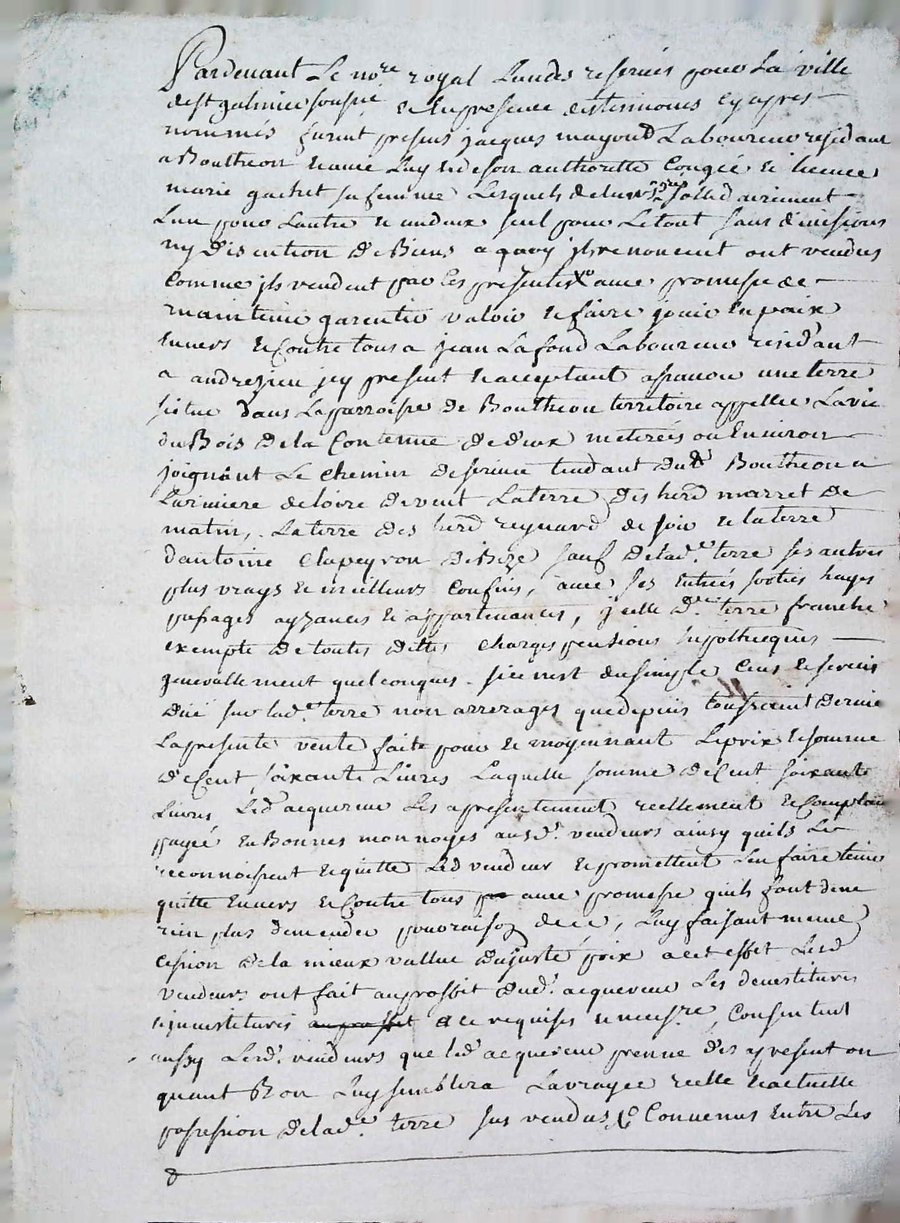 Pardevant Le no.re royal Landes reservés pour La ville
de st galmier soussé. et En presence des temoins cy apres
nommés furent presens jacques mayoud Laboureur residant
a Boutheon et avec Luy et de son authorité Congée et licence
marie gachet sa femme Lesquels de leur gré sollidairement
Lun pour Lautre et un deux seul pour Le tout sans division
ny discution de Biens a quoy jls renoncent ont vendus
Comme jls vendent par Les presentes avec promesse de
maintenir garentir valoir et faire jouir En paix
Envers et Contre tous a jean Lafond Laboureur residant
a andrezieu jcy present et acceptant a scavoir une terre
situe dans La parroisse de Boutheon territoire appellee La vie
du Bois de La Contenue de deux meterés ou Environ
joignant Le Chemin de tendant dud Boutheon a
La riviere de loire de vent La terre des herd marret de
matin, La terre des herd reynard de soir et la terre
dantoine Clapeyron de Bize sauf de lad.e terre ses autres
plus vrays et meilleurs Confins, avec ses Entrés sorties hayes
passages ayzances et appartenances, jcelle d.e terre franche
exempte de toutes dettes Charges pensions hypotheques
generallement quelconques. si ce nest du simple Cens et servis
Due sur lad.e terre non arrerages que depuis toussaint dernier
La presente vente faite pour et moyennant Le prix et somme
de Cent soixante Livres Laquelle somme de Cent soixante
Livres Led acquereur Les a presentement reellement et Comptant
payée En Bonnes monnoyes ausd. vendeurs ainsy quils Le
reconnoissent et quitte Led vendeur et promettent Len faire tenir
quitte Envers et Contre tous avec promesse quils font de ne
rien plus demender pour raison de ce, Luy faisant meme
Cession de la mieux vallue du juste prix a cet effet Lesd
vendeurs ont fait au proffit dud. acquereur Les devestitures
et jnvestitures au proffit a ce requises et necess.re, Consentent
aussy Lesd. vendeurs que led acquereur prenne des a present ou
quant Bon Luy semblera La vrayee reelle et actuelle
possession de lad.e terre sus vendus, Convenus Entre Les